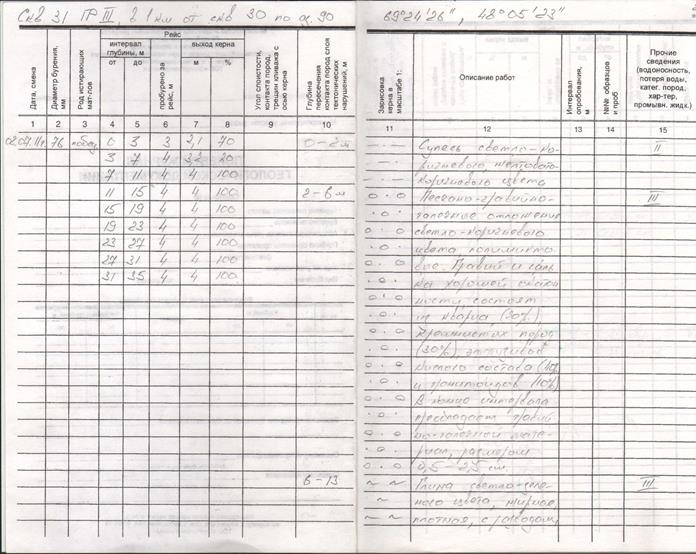 Скв 31 ПР III, в 1 км от скв 30 по аз. 90
69°24'26", 48°05'23"
Дата, смена
Диаметр бурения, мм
Род истирающих мат-лов
Рейс
интервал глубины, м
от
до
пробурено за рейс, м
выход керна
м
%
Угол слоистости, контакта пород, трещин кливажа с осью керна
Глубина пересечения контакта пород слоя тектонических нарушений, м
Зарисовка керна в масштабе 1:
Описание работ
Интервал опробования, м
№№ образцов и проб
Прочие сведения (водоносность, потеря воды, катег. пород, хар-тер, промывн. жидк.)
1 2 3 4 5 6 7 8 9 10
11 12 13 14 15
76 победит 0 3 3 2,1 70 0-2м
3 7 4 3,2 20
7 11 4 4 100
11 15 4 4 100 2-6м
15 19 4 4 100
19 23 4 4 100
23 27 4 4 100
27 31 4 4 100
31 35 4 4 100
6-13
Супесь светло-ко- II
ричневого, желтовато-
коричневого цвета
Песчано-гравийно- III
галечные отложения
светло-коричневого
цвета, полимикто-
вые. Гравий и галь
ка хорошей окатан
ности, состоят
из кварца (20%)
Кремнистых пород
(30%), эффузивов
кислого состава (40%
и гранитоидов (10%)
В конце интервала
преобладает гравий
но-галечной мате-
риал, размером
0,5-2,5 см.
Глина светло-зеле- III
ного цвета, жирная,
плотная, с разводами